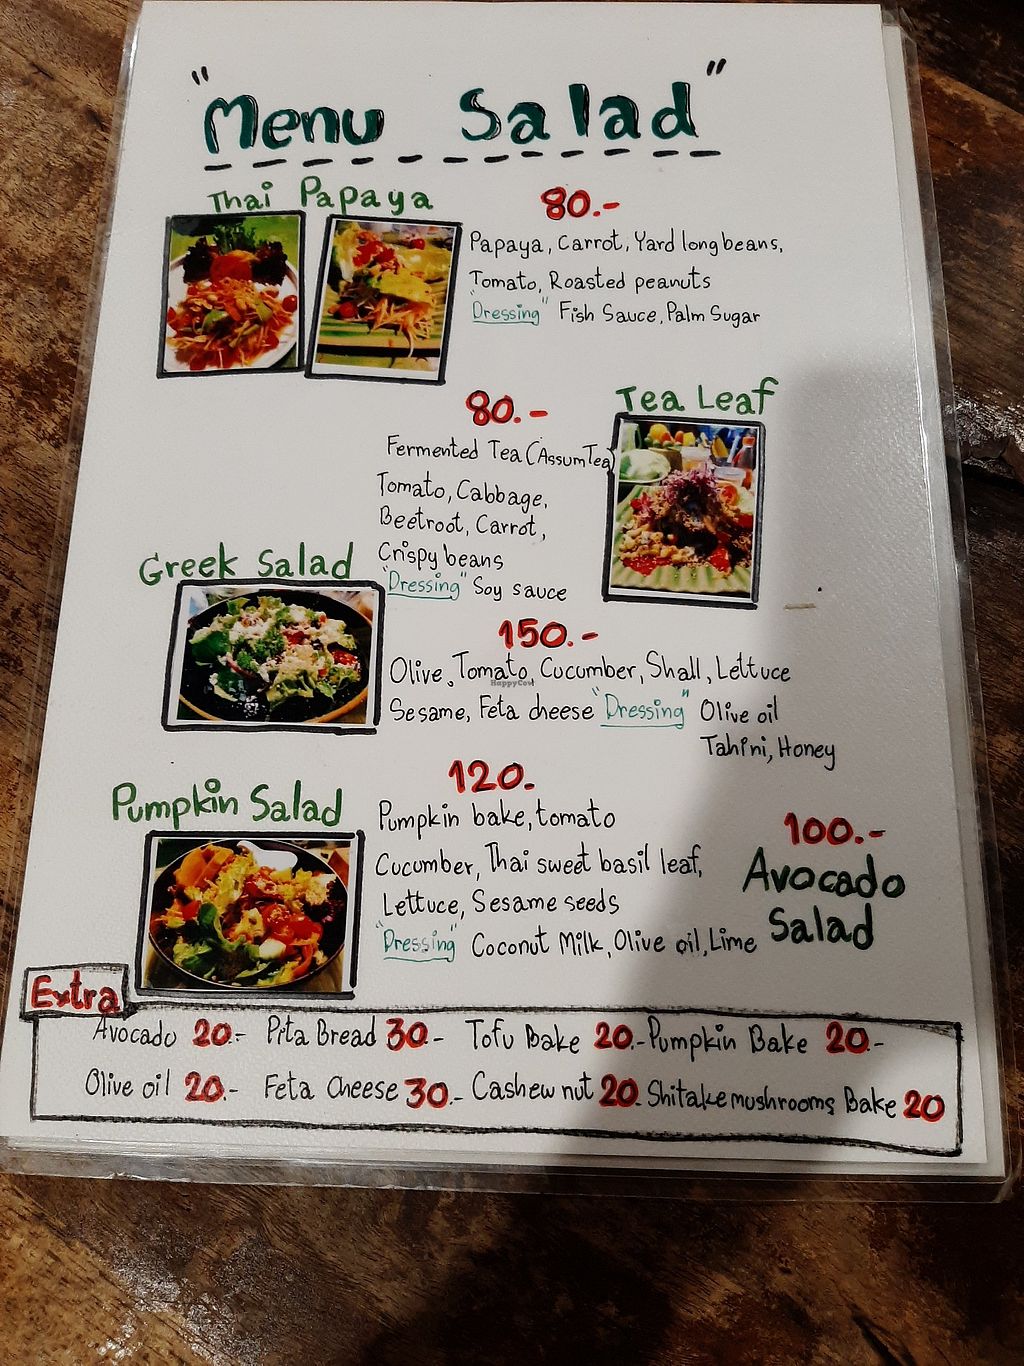 "Menu Salad"
Thai Papaya 80.-
Papaya, Carrot, Yard long beans,
Tomato, Roasted peanuts
"Dressing" Fish Sauce, Palm Sugar
Tea Leaf
80.-
Fermented Tea (Assum Tea)
Tomato, Cabbage,
Beetroot, Carrot,
Crispy beans
"Dressing" Soy sauce
Greek Salad
150.-
Olive, Tomato, Cucumber, Shall, Lettuce
HappyCow
Sesame, Feta cheese "Dressing" Olive oil
Tahini, Honey
Pumpkin Salad
120.-
Pumpkin bake, tomato
Cucumber, Thai sweet basil leaf,
Lettuce, Sesame seeds
"Dressing" Coconut Milk, Olive oil, Lime
100.-
Avocado
Salad
Extra
Avocado 20.- Pita Bread 30.- Tofu Bake 20.- Pumpkin Bake 20.-
Olive oil 20.- Feta Cheese 30.- Cashew nut 20.- Shitake mushrooms Bake 20